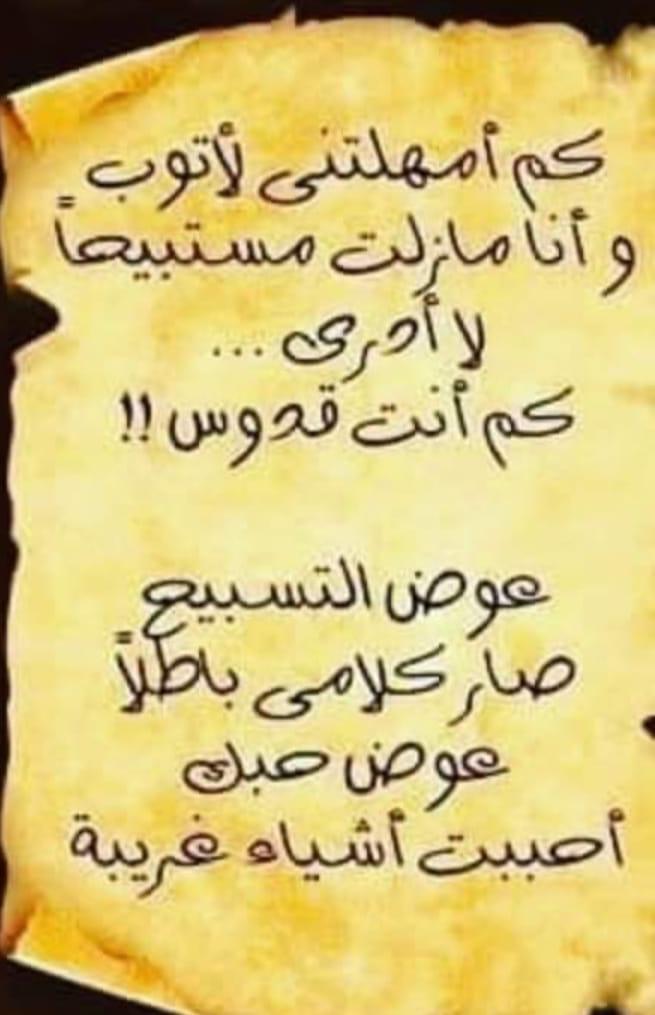 كم أمهلتنى لأتوب
و أنا مازلت مستبيحاً
لا أدرى ...
كم أنت قدوس !!
عوض التسبيح
صار كلامى باطلاً
عوض حبك
أحببت أشياء غريبة